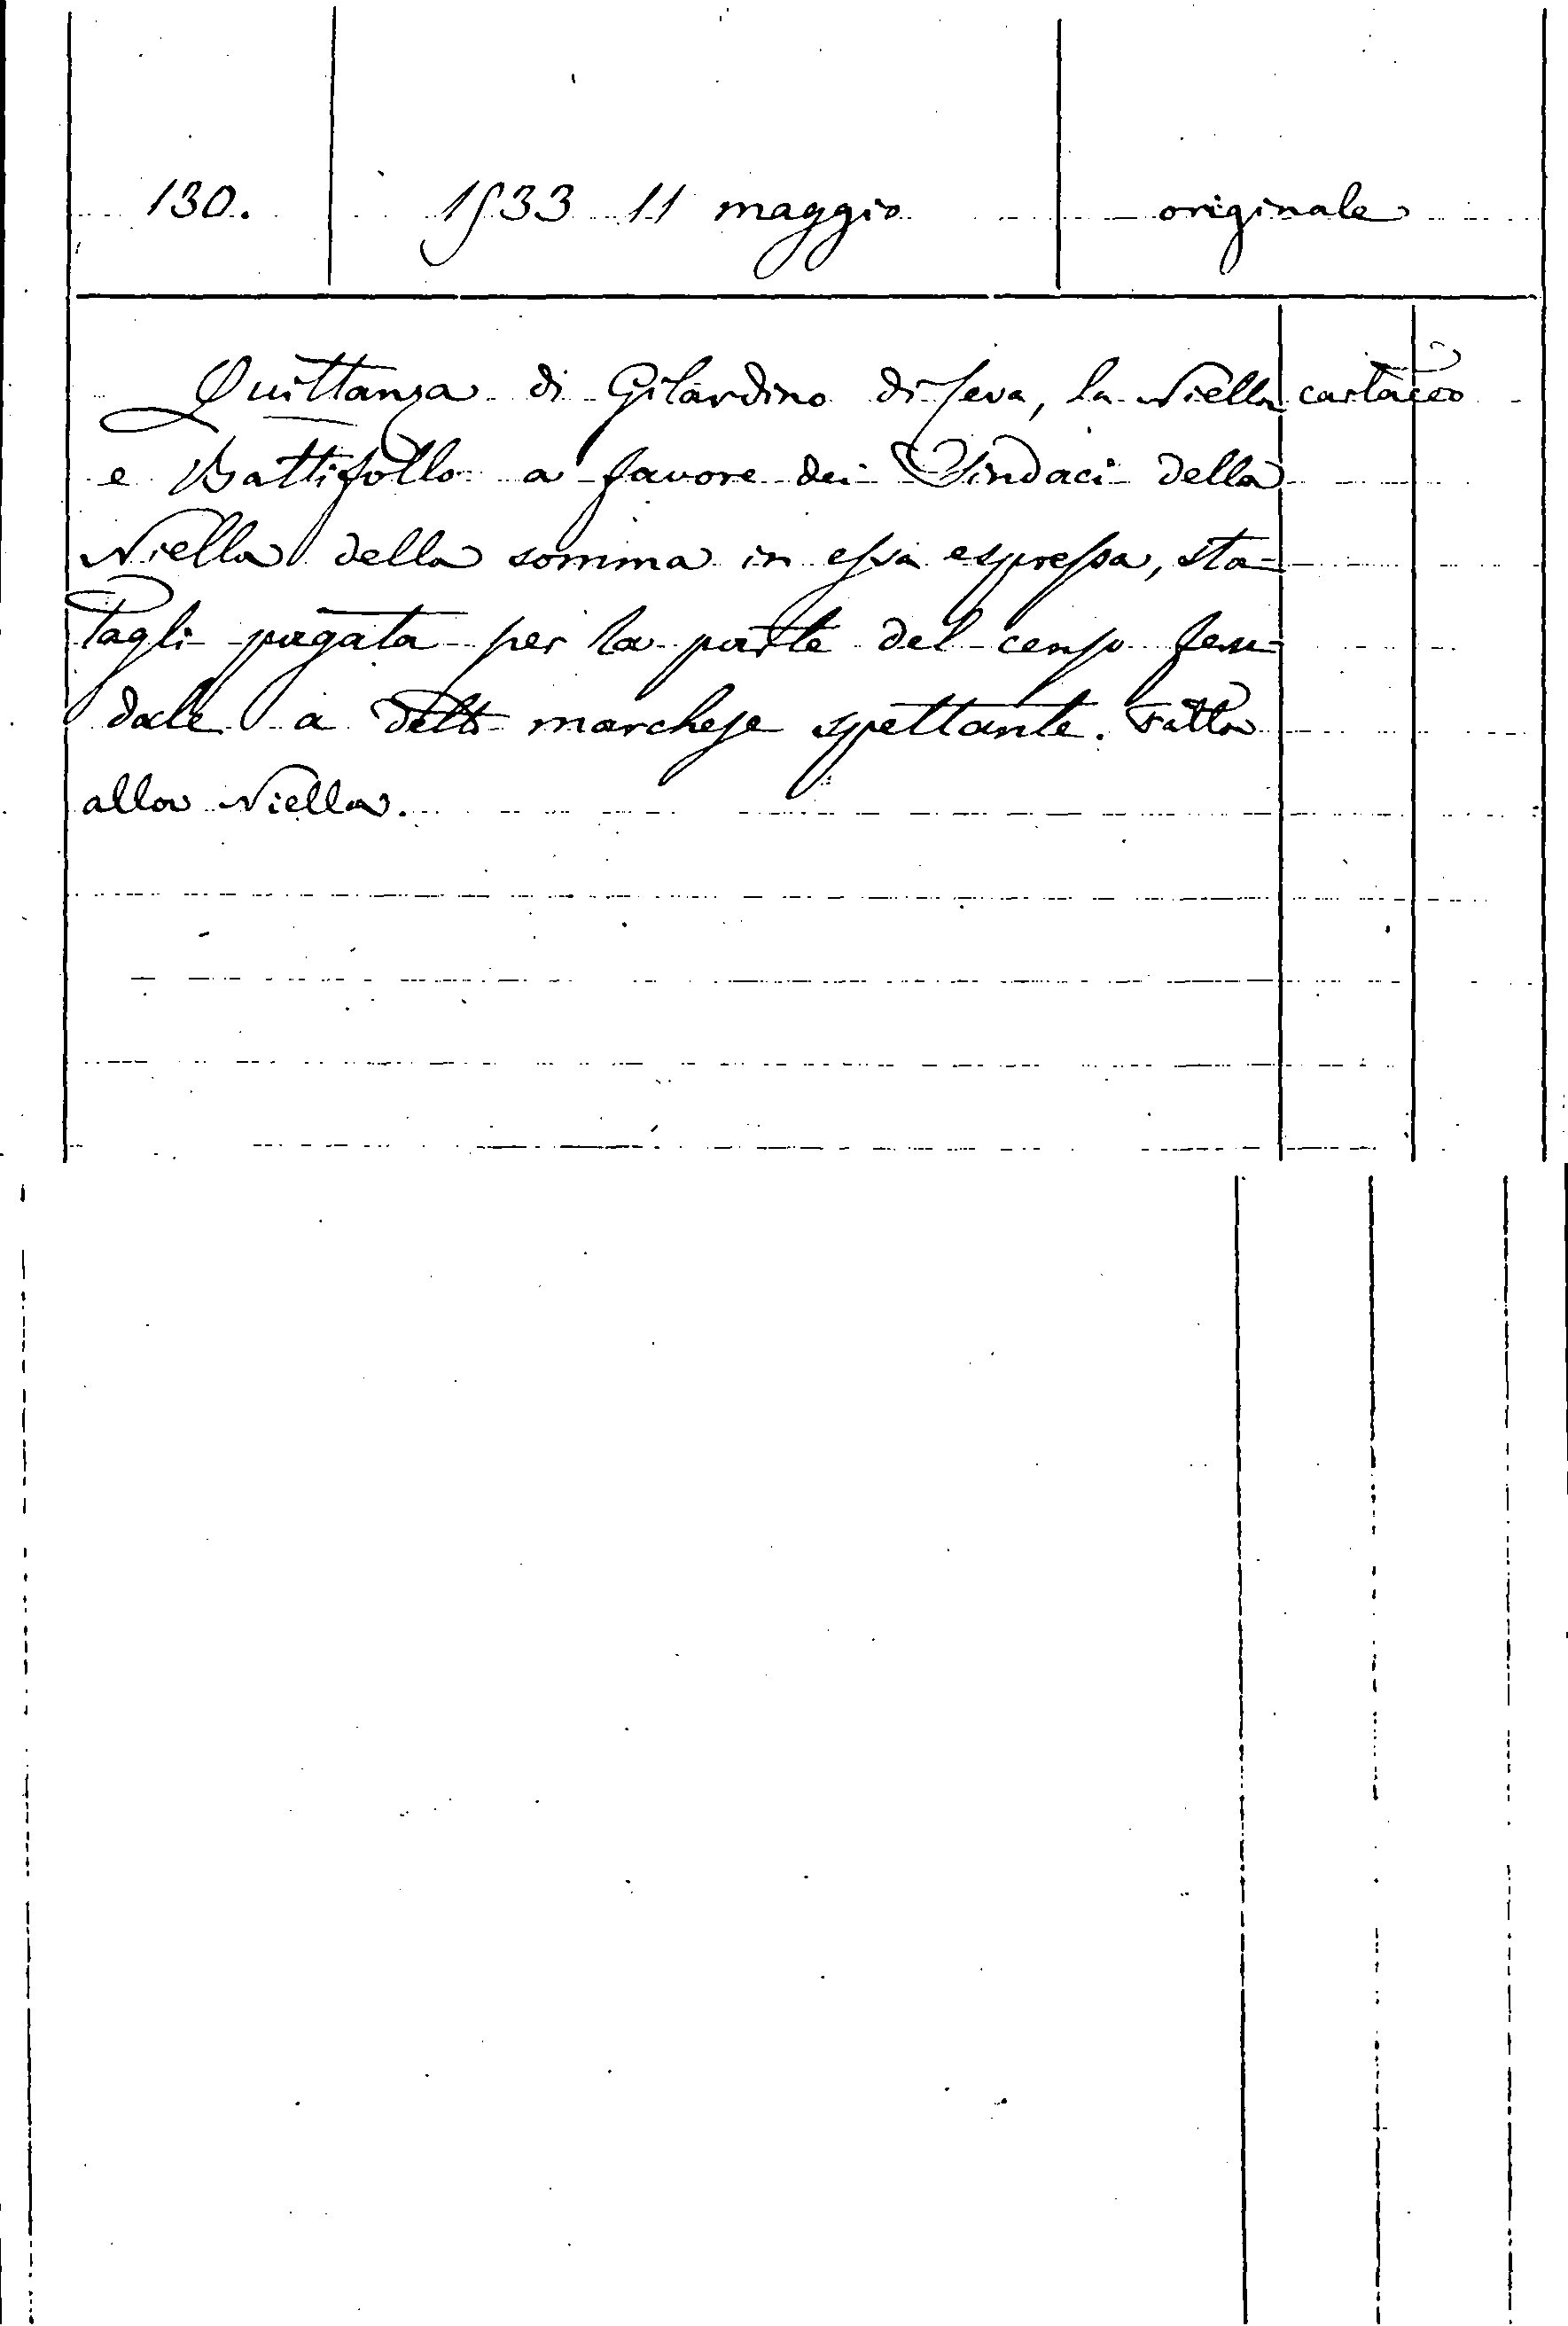 130. 1533 11 maggio originale
Quittanza di Gilardino di Ceva, la Niella cartaceo
e Battifollo a favore dei Sindaci della
Niella della somma in essa espressa, sta=
tagli pagata per la parte del censo feu=
dale a detto marchese spettante. Fatta
alla Niella.